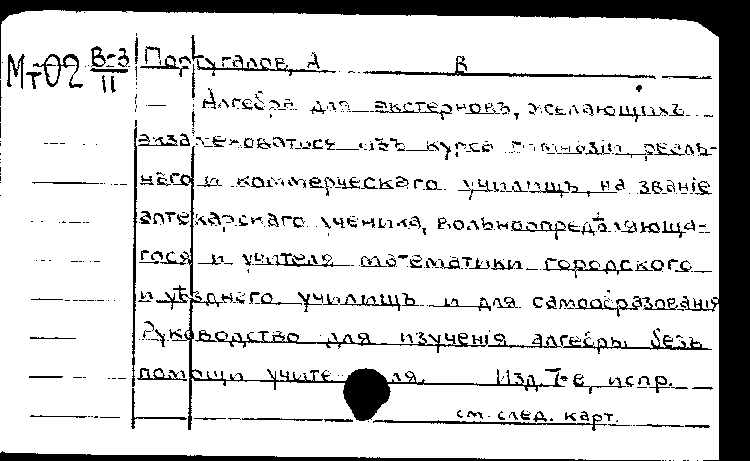 Мт02 В-3/II Португалов, А В
— Алгебра для экстерновъ, желающихъ
экзаменоваться изъ курса гимназіи, реаль-
наго и коммерческаго училищъ, на званіе
аптекарскаго ученика, вольноопредѣляюща-
гося и учителя математики городского
и уѣзднаго училищъ и для самообразованія
Руководство для изученія алгебры безъ
помощи учителя. Изд. 7-е, испр.
см. след. карт.